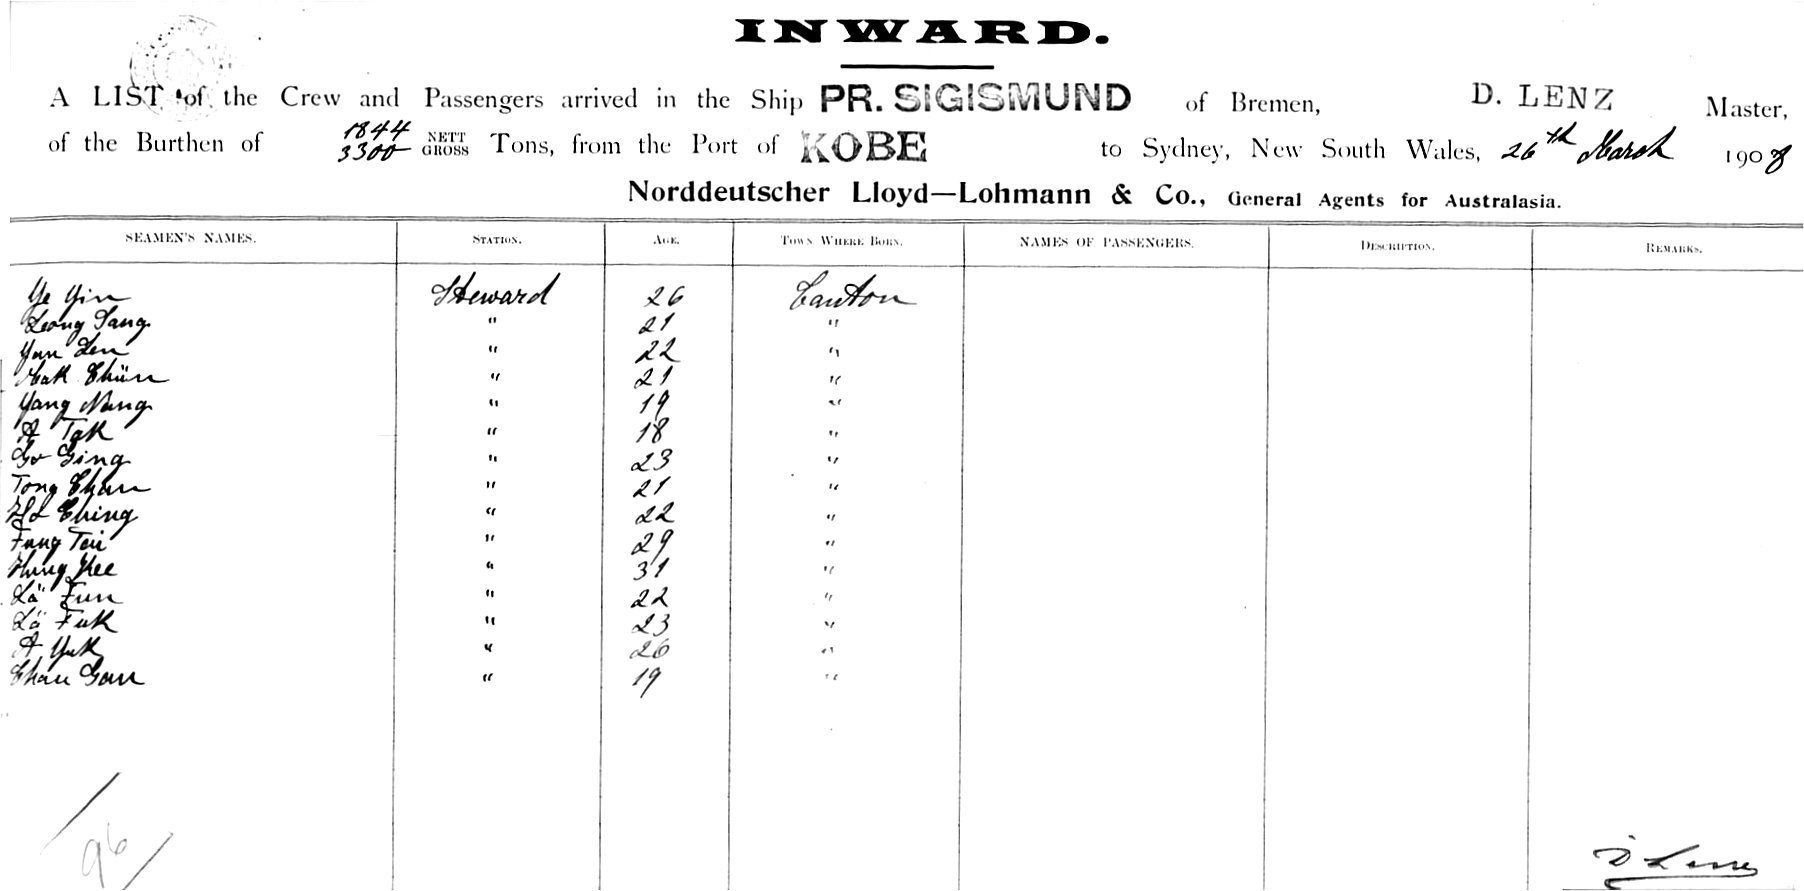 INWARD.
A LIST of the Crew and Passengers arrived in the Ship PR. SIGISMUND of Bremen, D. LENZ Master,
of the Burthen of 1844 NETT 3300 GROSS Tons, from the Port of KOBE to Sydney, New South Wales, 26th March 1908
Norddeutscher Lloyd—Lohmann & Co., General Agents for Australasia.
SEAMEN'S NAMES. STATION. AGE. TOWN WHERE BORN. NAMES OF PASSENGERS. DESCRIPTION. REMARKS.
Ye Yin Steward 26 Canton
Leong Sang " 21 "
Yun Len " 22 "
Mak Chün " 21 "
Yang Nang " 19 "
A Tak " 18 "
Go Ging " 23 "
Tong Chun " 21 "
Ho Ching " 22 "
Fung Tai " 29 "
Hung Kee " 31 "
Lä Fun " 22 "
Lä Fuk " 23 "
A Yuk " 26 "
Chau Gan " 19 "
96
D Lenz